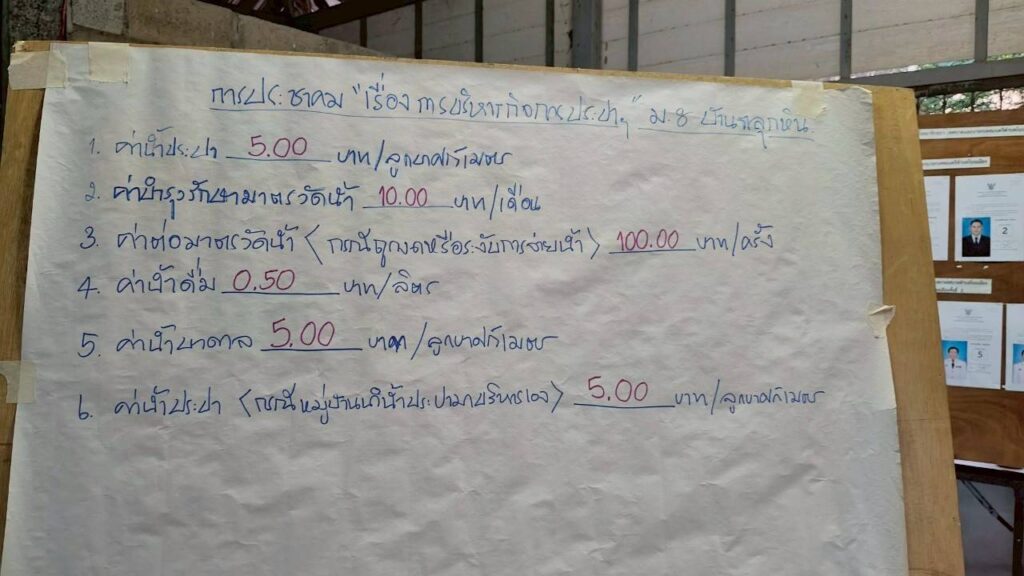 การประชาคม "เรื่อง การบริหารกิจการประปาฯ" ม.8 บ้านหลุกหิน
1. ค่าน้ำประปา 5.00 บาท/ลูกบาศก์เมตร
2. ค่าบำรุงรักษามาตรวัดน้ำ 10.00 บาท/เดือน
3. ค่าต่อมาตรวัดน้ำ (กรณีถูกงดหรือระงับการจ่ายน้ำ) 100.00 บาท/ครั้ง
4. ค่าน้ำดื่ม 0.50 บาท/ลิตร
5. ค่าน้ำบาดาล 5.00 บาท/ลูกบาศก์เมตร
6. ค่าน้ำประปา (กรณีหมู่บ้านนำน้ำประปามาบริหารเอง) 5.00 บาท/ลูกบาศก์เมตร
2
5